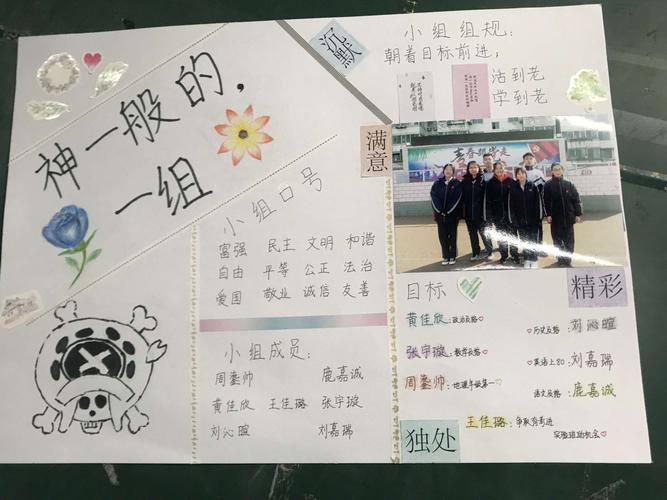 神一般的，
一组
沉默
小组组规：
朝着目标前进，
活到老
学到老
满意
小组口号
富强 民主 文明 和谐
自由 平等 公正 法治
爱国 敬业 诚信 友善
小组成员：
周銮帅 鹿嘉诚
黄佳欣 王佳璐 张宇璇
刘沁暄 刘嘉瑞
目标
精彩
黄佳欣：政治及格♡
历史及格：刘沁暄
张宇璇：数学及格♡
英语上80：刘嘉瑞
周銮帅：地理年级第一♡
语文及格：鹿嘉诚
王佳璐：争取有奇迹
实验班助机会♡
独处